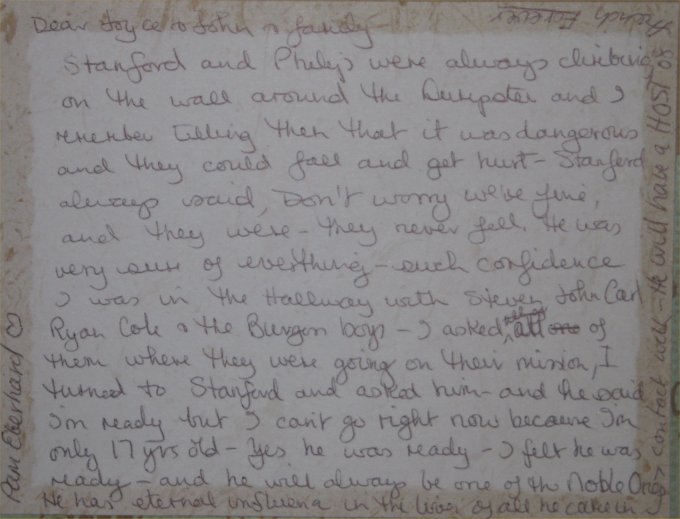 Dear Joyce & John & family
Stanford and Philip were always climbing
on the wall around the Dumpster and I
remember telling them that it was dangerous
and they could fall and get hurt - Stanford
always said, Don't worry we're fine,
and they were - they never fell. He was
very sure of everthing - such confidence
I was in the Hallway with Steven, John Carl
Ryan Cole & the Burgon boys - I asked all of
them where they were going on their mission, I
turned to Stanford and asked him - and he said
I'm ready but I can't go right now because I'm
only 17 yrs old - Yes he was ready - I felt he was
ready - and he will always be one of the Noble Ones
He has eternal influence in the lives of all he came in
contact with - He will have a HOST of
friends Forever
Pam Eberhard ♡